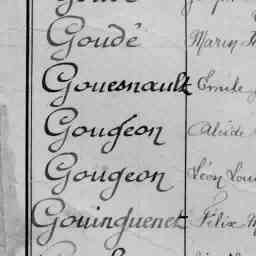 Goudé Marin
Gouesnault Emile
Gougeon Alcide
Gougeon Léon Loui
Gouinguenet Félix M